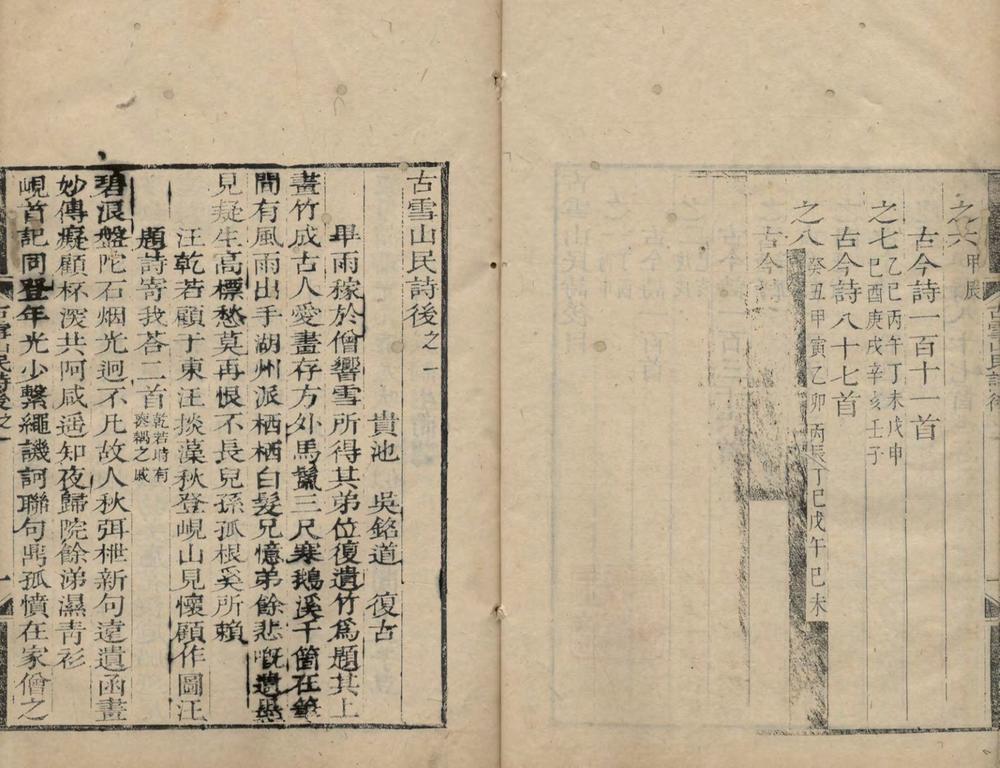 之六甲辰
古今詩一百十一首
之七乙巳丙午丁未戊申
己酉庚戌辛亥壬子
古今詩八十七首
之八癸丑甲寅乙卯丙辰丁巳戊午己未
古今
古雪山民詩後之一
貴池 吳銘道 復古
畢雨稼於僧響雪所得其弟位復遺竹爲題其上
畫竹成古人愛畫存方外馬鬣三尺寒鵝溪千箇在
間有風雨出手湖州派栖栖白髮兄憶弟餘悲嘅遺墨
見疑生高標愁莫再恨不長兒孫孤根奚所賴
汪乾若顧于東汪掞藻秋登峴山見懷顧作圖汪
題詩寄我荅二首乾若時有喪耦之戚
碧浪盤陀石烟光迥不凡故人秋弭枻新句遠遺函畫
妙傳癡顧杯深共阿咸遥知夜歸院餘涕濕青衫
峴首記同登年光少繫繩譏訶聯句禼孤憤在家僧之
古雪山民詩後之一